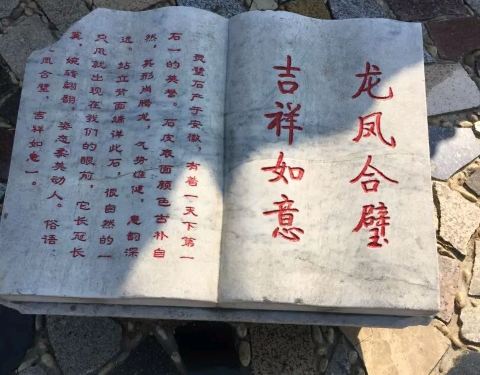 龙凤合璧
吉祥如意
灵璧石产于安徽，有着“天下第一
石”的美誉。石皮表面颜色古朴自
然，其形肖腾龙，气势雄健，意韵深
远。站立背面端详此石，很自然的一
只凤就出现在我们的眼前，它长冠长
翼，婉转翩翩。姿态柔美动人。俗语：
“凤合璧，吉祥如意”。